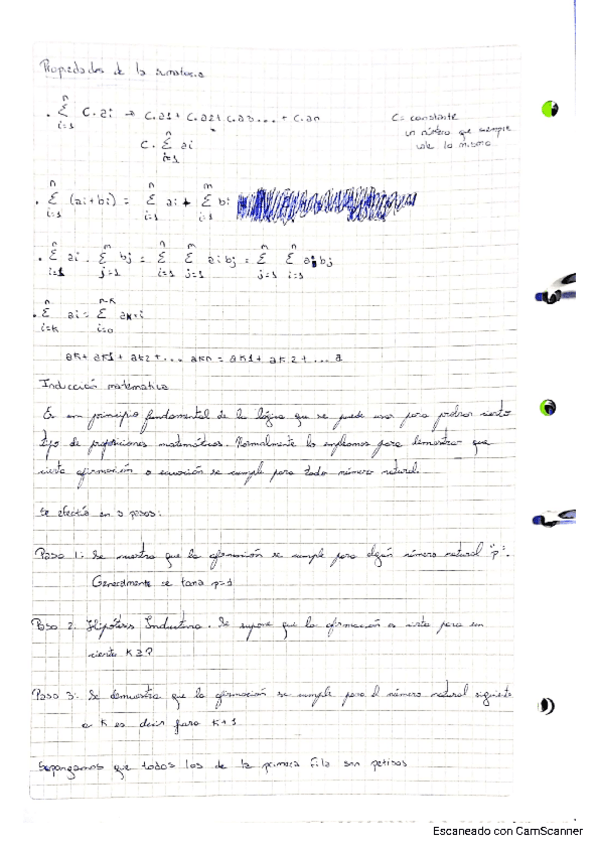 Propiedades de la sumatoria
• n Σ i=1 c.ai → c.a1 + c.a2 + c.a3 ... + c.an C = constante
un número que siempre
vale lo mismo
c. n Σ i=1 ai
• n Σ i=1 (ai+bi) = n Σ i=1 ai + m Σ i=1 bi
• n Σ i=1 ai . m Σ j=1 bj = n Σ i=1 m Σ j=1 aibj = m Σ j=1 n Σ i=1 aibj
• n Σ i=k ai = n-k Σ i=0 ak+i
ak + ak1 + ak2 + ... akn = ak1 + ak2 + ... a
Inducción matematica
Es un principio fundamental de la lógica que se puede usar para probar cierto
tipo de proposiciones matemáticas. Normalmente lo empleamos para demostrar que
cierta afirmación o ecuación se cumple para todo número natural.
Se efectúa en 3 pasos:
Paso 1: Se muestra que la afirmación se cumple para algún número natural "p".
Generalmente se toma p=1
Paso 2: Hipótesis Inductiva. Se supone que la afirmación es cierta para un
cierto K≥
Paso 3: Se demuestra que la afirmación se cumple para el número natural siguiente
a K es decir para K+1
Supongamos que todos los de la primera fila son petisos
Escaneado con CamScanner